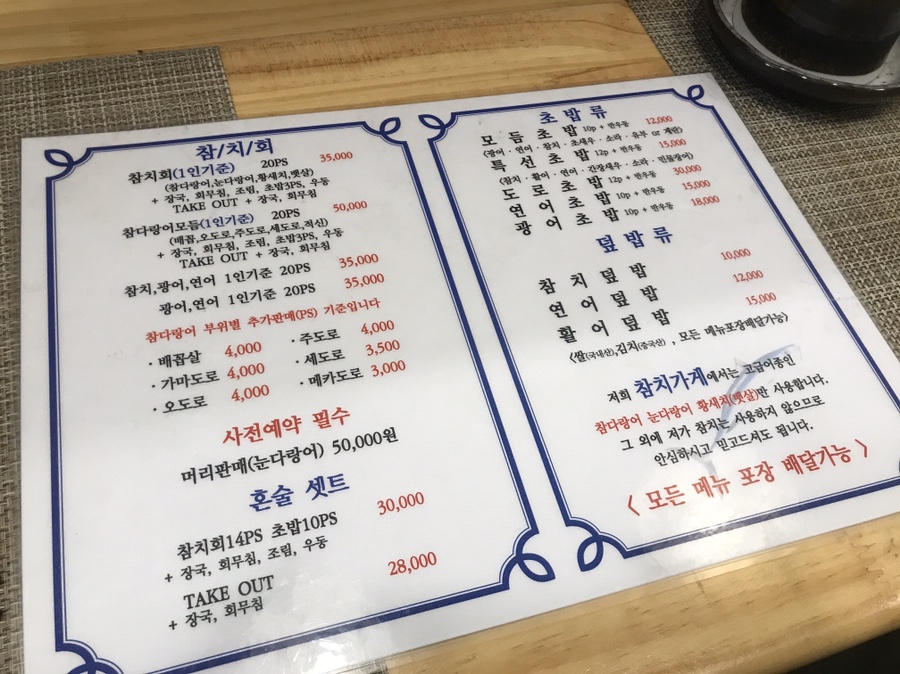 참/치/회
참치회(1인기준) 20PS 35,000
(참다랑어,눈다랑어,황새치,뱃살)
+ 장국, 회무침, 조림, 초밥3PS, 우동
TAKE OUT + 장국, 회무침
참다랑어모듬(1인기준) 20PS 50,000
(배꼽,오도로,주도로,세도로,적신)
+ 장국, 회무침, 조림, 초밥3PS, 우동
TAKE OUT + 장국, 회무침
참치,광어,연어 1인기준 20PS 35,000
광어,연어 1인기준 20PS 35,000
참다랑어 부위별 추가판매(PS) 기준입니다
· 배꼽살 4,000 · 주도로 4,000
· 가마도로 4,000 · 세도로 3,500
· 오도로 4,000 · 메카도로 3,000
사전예약 필수
머리판매(눈다랑어) 50,000원
혼술 셋트
참치회14PS 초밥10PS 30,000
+ 장국, 회무침, 조림, 우동
TAKE OUT 28,000
+ 장국, 회무침
초밥류
모듬초밥 10p + 반우동 12,000
(광어 · 연어 · 참치 · 초새우 · 소라 · 유부 or 계란)
특선초밥 12p + 반우동 15,000
(참치 · 활어 · 연어 · 간장새우 · 소라 · 민물장어)
도로초밥 12p + 반우동 30,000
연어초밥 10p + 반우동 15,000
광어초밥 10p + 반우동 18,000
덮밥류
참치덮밥 10,000
연어덮밥 12,000
활어덮밥 15,000
<쌀(국내산),김치(중국산) , 모든 메뉴포장배달가능>
저희 참치가게에서는 고급어종인
참다랑어 눈다랑어 황새치(뱃살)만 사용합니다.
그 외에 저가 참치는 사용하지 않으므로
안심하시고 믿고드셔도 됩니다.
< 모든 메뉴 포장 배달가능 >